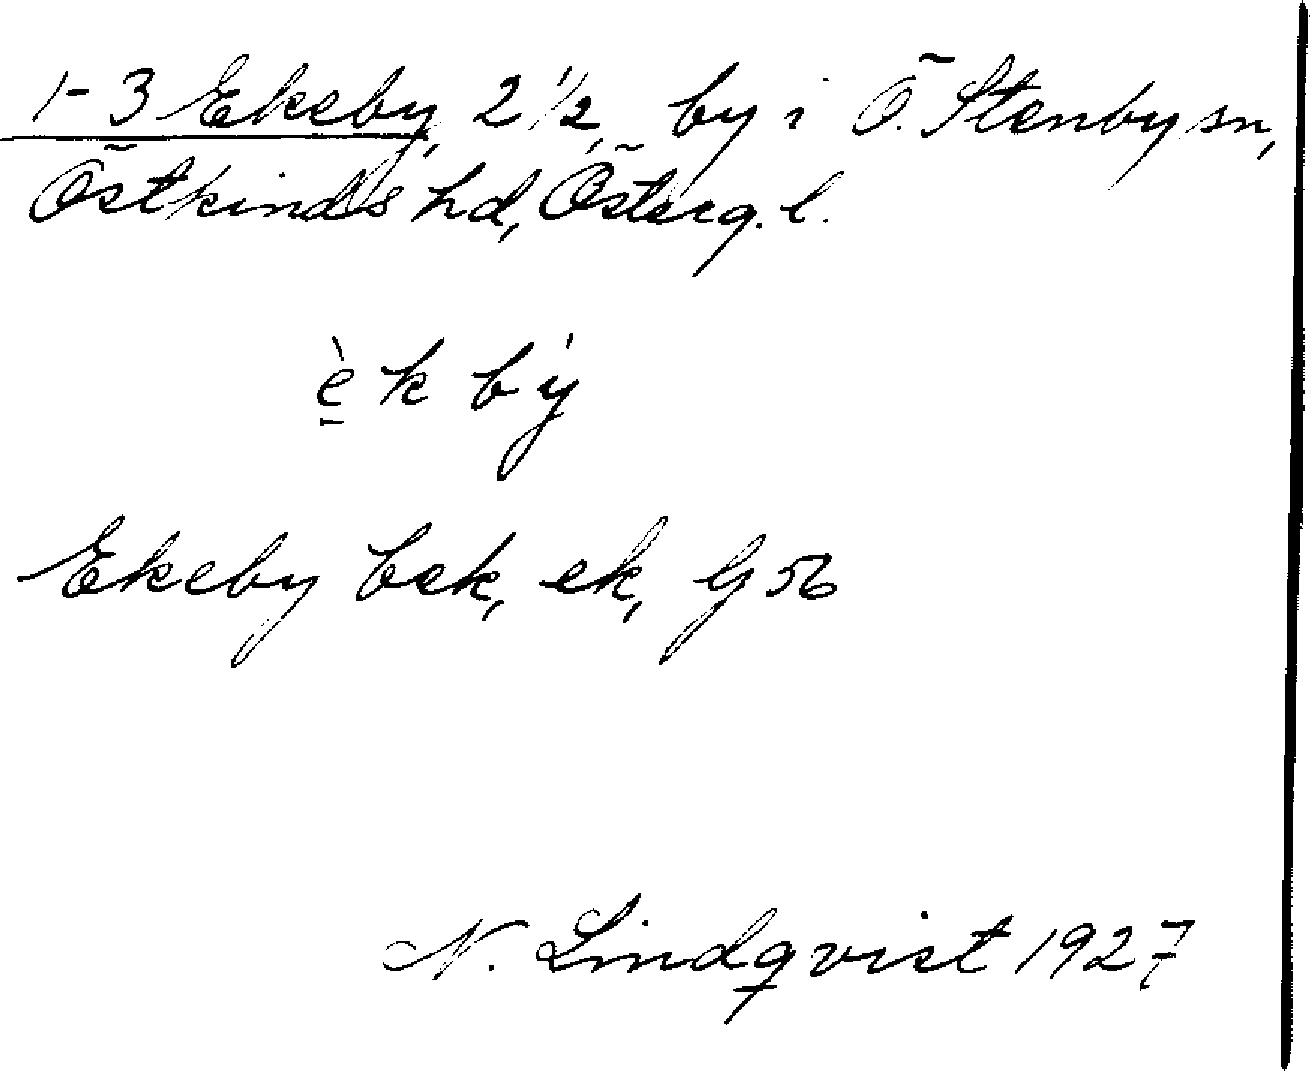 1-3 Ekeby, 2 1/2, by i Ö. Stenby sn,
Östkinds hd, Österg. l.
è̱k bý
Ekeby bek, ek, G 56
N. Lindqvist 1927